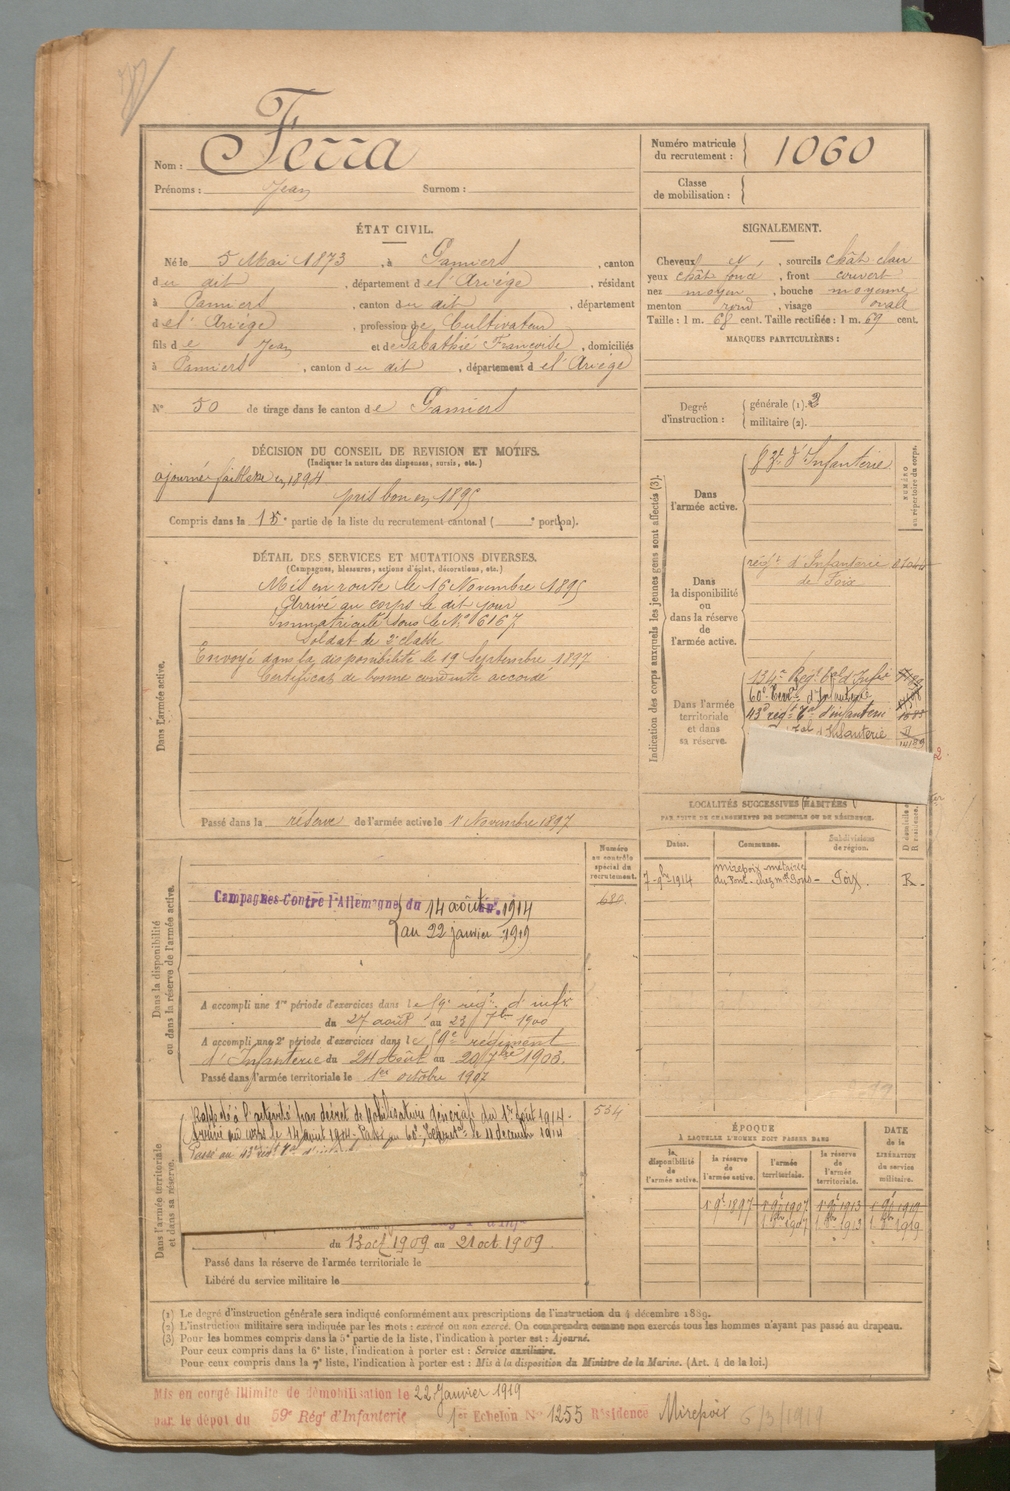 Nom : Ferra
Prénoms : Jean Surnom :
Numéro matricule du recrutement : 1060
Classe de mobilisation :
ÉTAT CIVIL.
Né le 5 Mai 1873, à Pamiers, canton
du dit, département de l'Ariège, résidant
à Pamiers, canton du dit, département
de l'Ariège, profession de Cultivateur
fils de Jean et de Sabathié Françoise, domiciliés
à Pamiers, canton du dit, département de l'Ariège
N° 50 de tirage dans le canton de Pamiers
SIGNALEMENT.
Cheveux, sourcils chât clair
yeux chât foncé, front couvert
nez moyen, bouche moyenne
menton rond, visage ovale
Taille : 1 m. 68 cent. Taille rectifiée : 1 m. 69 cent.
MARQUES PARTICULIÈRES :
Degré d'instruction : générale (1). 2
militaire (2).
DÉCISION DU CONSEIL DE REVISION ET MOTIFS.
(Indiquer la nature des dispenses, sursis, etc.)
ajourné faiblesse en 1894
pris bon en 1895
Compris dans la 1re partie de la liste du recrutement cantonal ( e portion).
DÉTAIL DES SERVICES ET MUTATIONS DIVERSES.
(Campagnes, blessures, actions d'éclat, décorations, etc.)
Dans l'armée active.
Mis en route le 16 Novembre 1895
Arrivé au corps le dit jour
Immatriculé sous le N° 6167
Soldat de 2e classe
Envoyé dans la disponibilité le 19 Septembre 1897
Certificat de bonne conduite accordé
Passé dans la réserve de l'armée active le 1r Novembre 1897
Indication des corps auxquels les jeunes gens sont affectés (3).
NUMÉRO au répertoire du corps.
Dans l'armée active.
83e d'Infanterie
Dans la disponibilité ou dans la réserve de l'armée active.
régt d'Infanterie
de Foix
Dans l'armée territoriale et dans sa réserve.
134e Régt tal d'Infie
60e Terral d'Infanterie
43e régt tal d'infanterie
d'Infanterie
LOCALITÉS SUCCESSIVES HABITÉES
PAR SUITE DE CHANGEMENTS DE DOMICILE OU DE RÉSIDENCE.
Dates. Communes. Subdivisions de région.
7 - 9bre 1914 mirepoix - métairie
du Pont - chez mr Pons - Foix. R -
Dans la disponibilité ou dans la réserve de l'armée active.
Numéro au contrôle spécial du recrutement.
684
Campagnes Contre l'Allemagne du 14 août 1914
au 22 janvier 1919
A accompli une 1re période d'exercices dans le 59e régt d'infie
du 27 août au 23 7bre 1900
A accompli une 2e période d'exercices dans le 59e régiment
d'Infanterie du 24 Août au 20 7bre 1903.
Passé dans l'armée territoriale le 1er octobre 1907
Dans l'armée territoriale et dans sa réserve.
534
Rappelé à l'activité par décret de Mobilisation Générale du 1er Août 1914.
Arrivé au corps le 14 août 1914. Passé au 60e Régt tal le 11 décembre 1914
Passé au 43e régt tal
du 13 oct 1909 au 21 oct. 1909
Passé dans la réserve de l'armée territoriale le
Libéré du service militaire le
ÉPOQUE
À LAQUELLE L'HOMME DOIT PASSER DANS
la disponibilité de l'armée active.
la réserve de l'armée active.
l'armée territoriale.
la réserve de l'armée territoriale.
DATE de la LIBÉRATION du service militaire.
1r 9bre 1897 1r 9bre 1907 1r 9bre 1913 1r 9bre 1919
1. 8bre 1907 1. 8bre 1913 1. 8bre 1919
(1) Le degré d'instruction générale sera indiqué conformément aux prescriptions de l'instruction du 4 décembre 1889.
(2) L'instruction militaire sera indiquée par les mots : exercé ou non exercé. On comprendra comme non exercés tous les hommes n'ayant pas passé au drapeau.
(3) Pour les hommes compris dans la 5e partie de la liste, l'indication à porter est : Ajourné.
Pour ceux compris dans la 6e liste, l'indication à porter est : Service auxiliaire.
Pour ceux compris dans la 7e liste, l'indication à porter est : Mis à la disposition du Ministre de la Marine. (Art. 4 de la loi.)
Mis en congé illimité de démobilisation le 22 Janvier 1919
par le dépôt du 59e Rég' d'Infanterie 1er Echelon No 1255 Résidence Mirepoix 6/3/1919